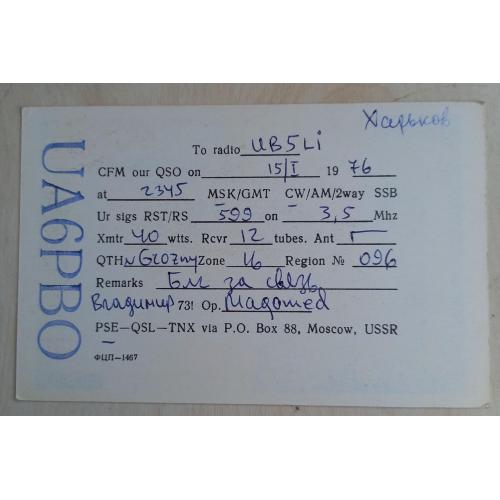 Харьков
UA6PBO
To radio UB5Li
CFM our QSO on 15/I 1976
at 2345 MSK/GMT CW/AM/2way SSB
Ur sigs RST/RS 599 on 3,5 Mhz
Xmtr 40 wtts. Rcvr 12 tubes. Ant Г
QTH Grozny Zone 16 Region № 096
Remarks Бл за связь
Владимир 73! Op. Magomed
PSE—QSL—TNX via P.O. Box 88, Moscow, USSR
ФЦП—1467